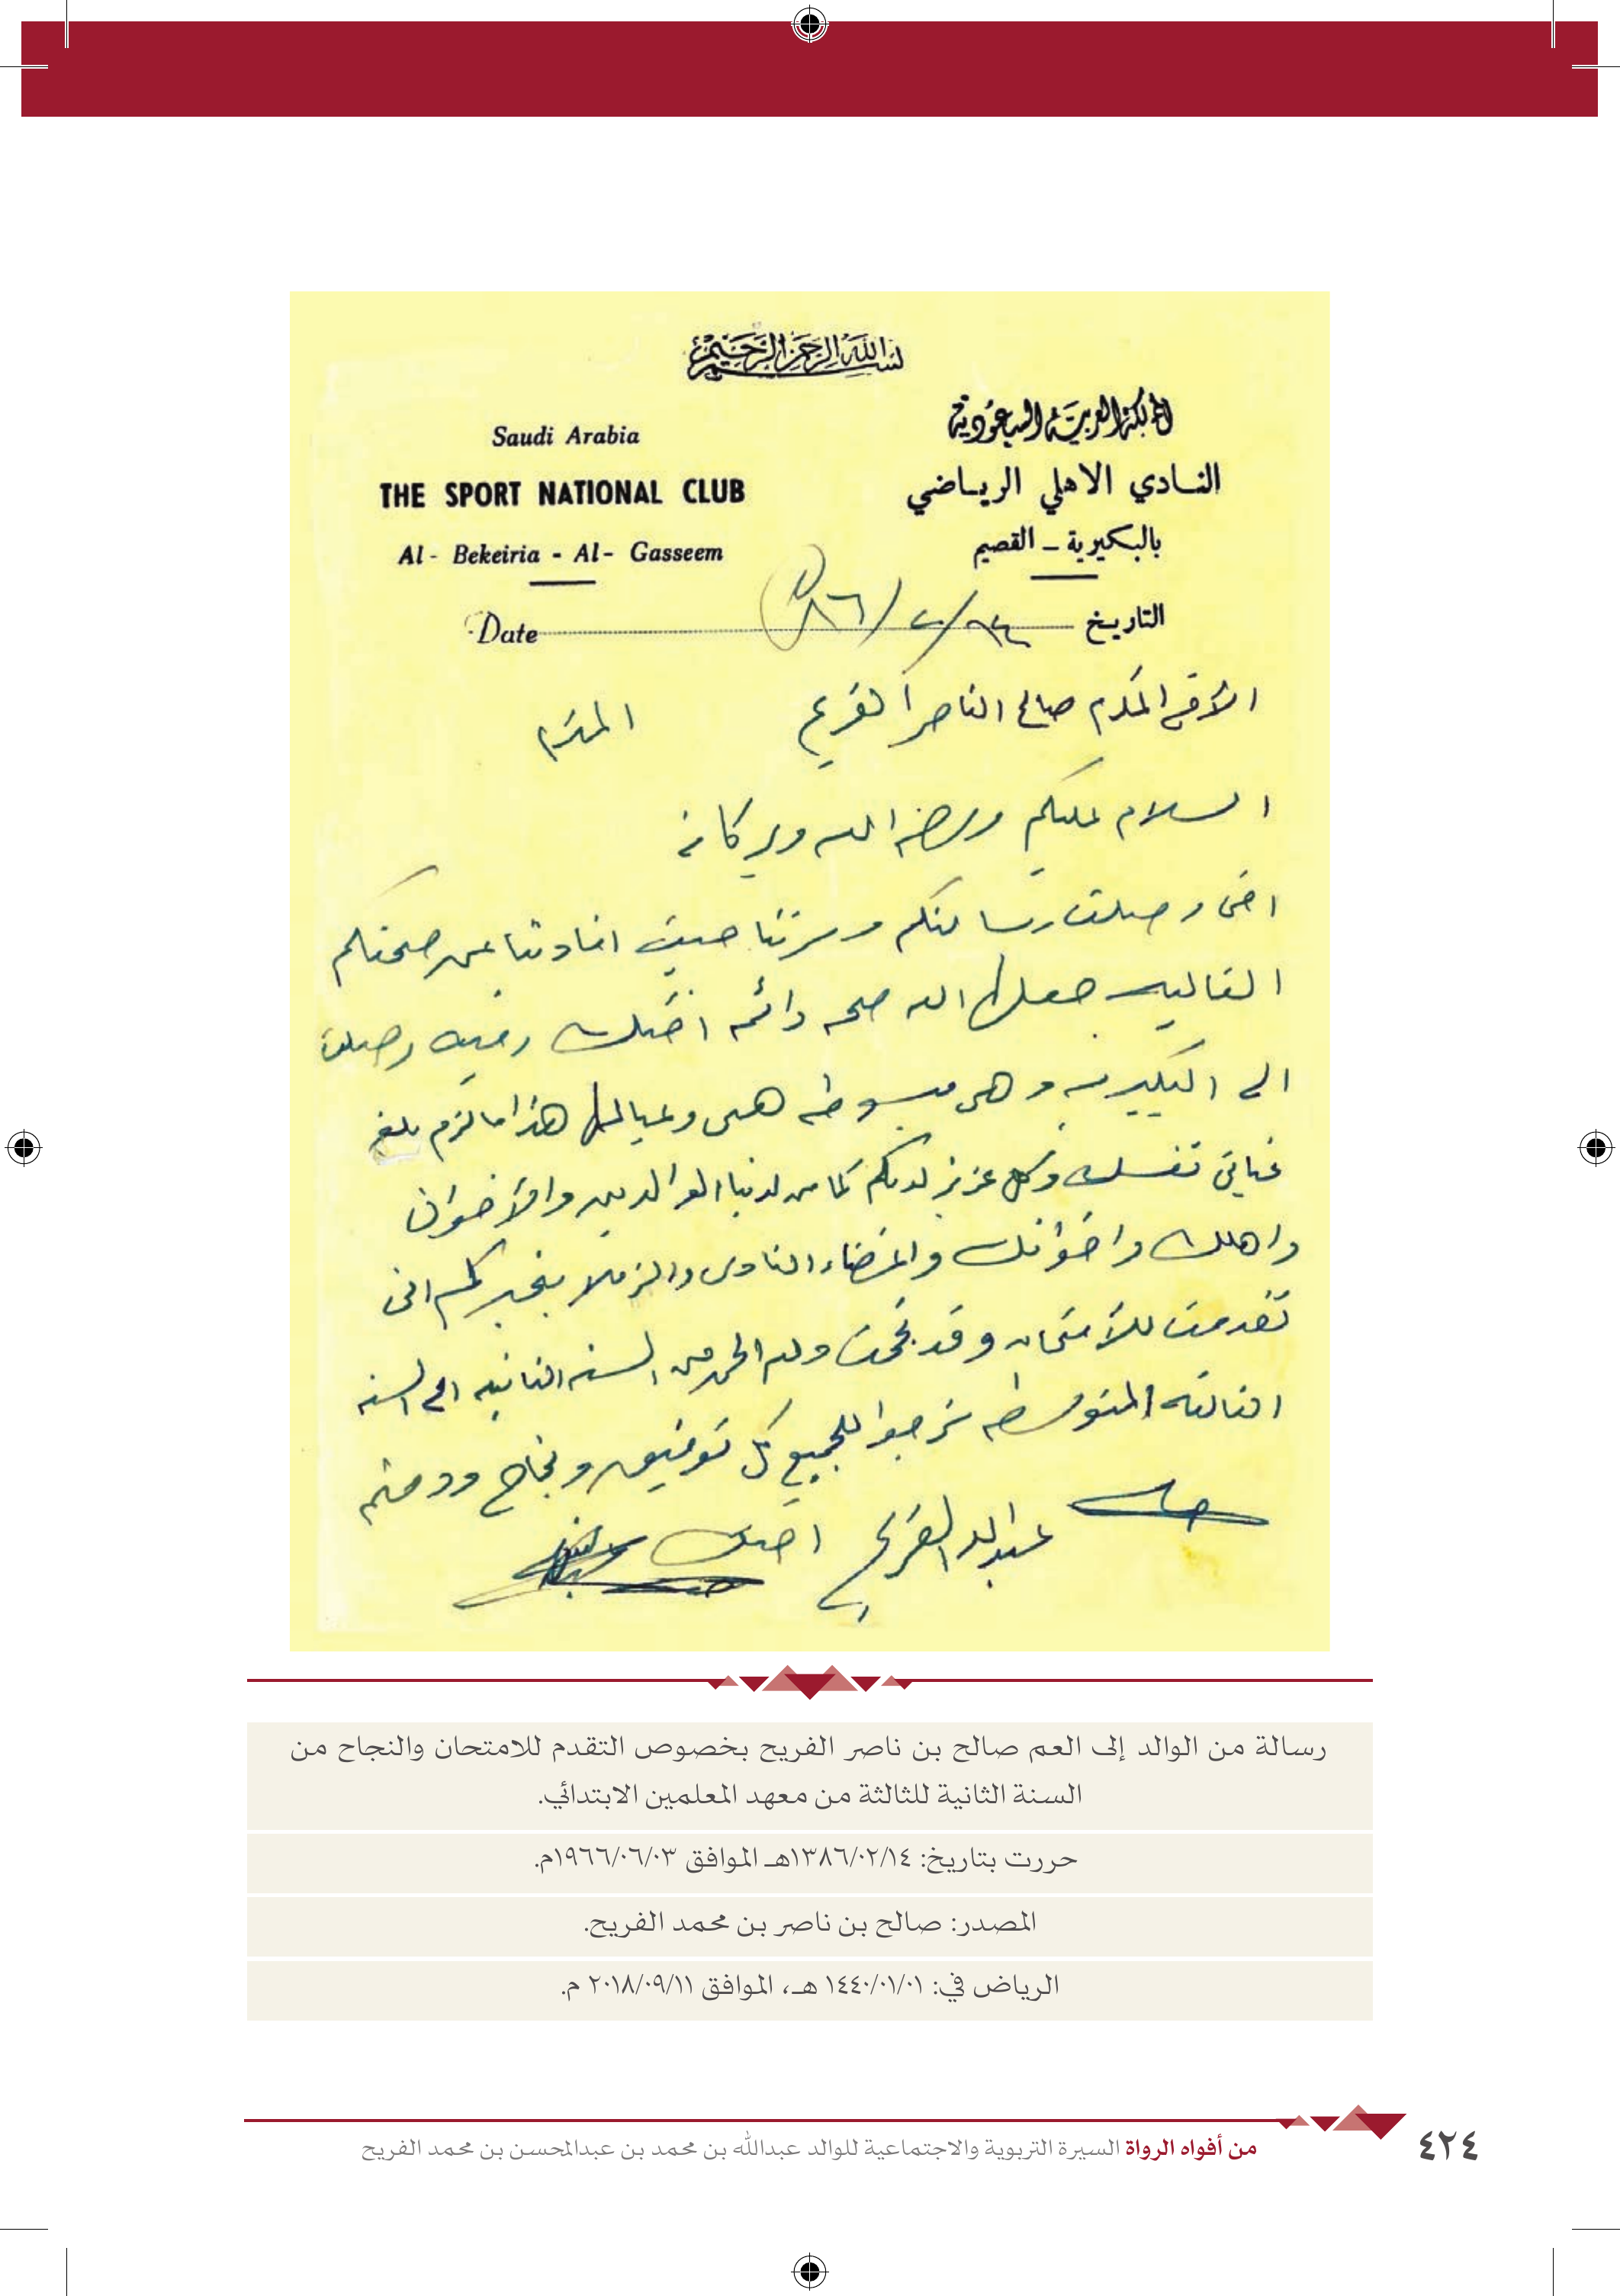 بسم الله الرحمن الرحيم
المملكة العربية السعودية
Saudi Arabia
النادي الاهلي الرياضي
THE SPORT NATIONAL CLUB
بالبكيرية - القصيم
Al - Bekeiria - Al - Gasseem
التاريخ
Date
الأخ المكرم صالح الناصر الفريح المحترم
السلام عليكم ورحمة الله وبركاته
اخى وصلت رسالتكم وسرتنا حيث افادتنا عن صحتكم
الغاليه جعلها الله صحه دائمه اختك رقيه وصلت
الى البكيريه وهى مبسوطه هى وعيالها هذا ما لزم بلغ
تحياتى نفسك وكل عزيز لديكم كما من لدينا الوالدين والأخوان
واهلك واخوانك واعضاء النادى والزملا بخير كم انى
تقدمت للأمتحان وقد نجحت ولله الحمد من السنه الثانيه الى السنه
الثالثه المتوسطه نرجوا للجميع كل توفيق ونجاح ودمتم
اخيك عبدالله الفريح
رسالة من الوالد إلى العم صالح بن ناصر الفريح بخصوص التقدم للامتحان والنجاح من
السنة الثانية للثالثة من معهد المعلمين الابتدائي.
حررت بتاريخ: ١٣٨٦/٠٢/١٤هـ الموافق ١٩٦٦/٠٦/٠٣م.
المصدر: صالح بن ناصر بن محمد الفريح.
الرياض في: ١٤٤٠/٠١/٠١ هـ، الموافق ٢٠١٨/٠٩/١١ م.
من أفواه الرواة السيرة التربوية والاجتماعية للوالد عبدالله بن محمد بن عبدالمحسن بن محمد الفريح
٤٢٤